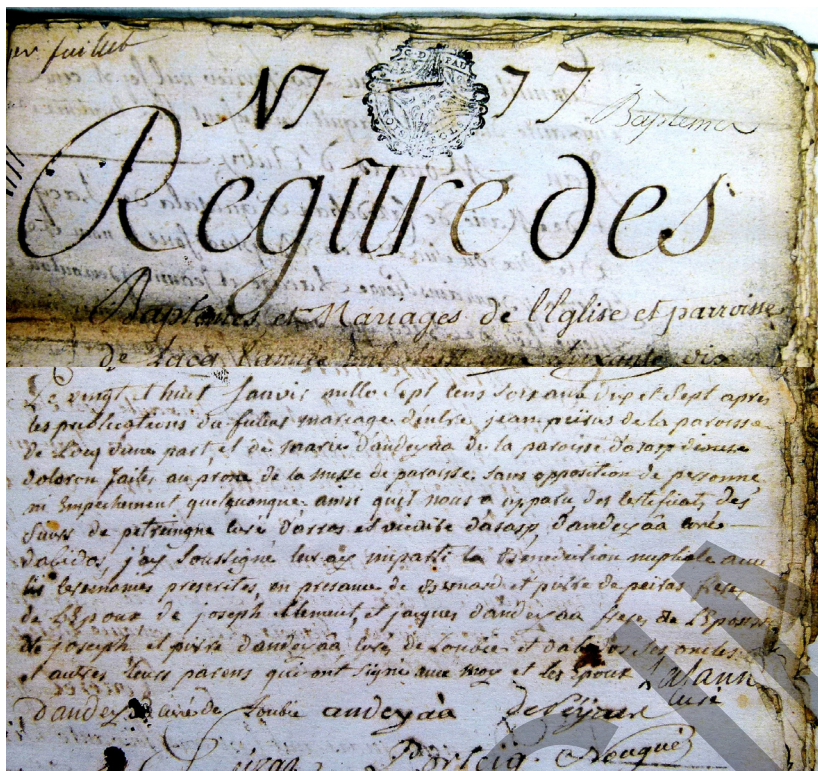 1er feuillet
N 1 77 Baptemes
Regître des
Baptemes et Mariages de l'Eglise et parroisse
de Lacq L'année mil sept cent soixante dix
Le vingt t huit Janvir mille Sept Cens Soixante dix et Sept apres
les publications du futur mariage d'entre jean peiras de la paroisse
de Loucq d'une part, et de marie d'andeyàa de la paroisse d'asasp diocese
doloron faites au prone de la messe de paroisse, sans opposition de personne
ni Empechement quelquonque, ainsi quil nous a apparu des Certificats des
Sieurs de petringne curé d'arros et vicaire d'asasp, d'andeyàa curé
d'abidos, j'ay Soussigné leur ay imparti la Benediction nuptiale avec
les ceremonies prescrites, en presance de Bernard et pierre de peiras freres
de L'Epoux de joseph Clement, et jaques d'andeyàa freres de L'Epouse
de joseph et pierre d'andeyàa curé de Loubie et d'abidos ses oncles
et autres leurs parens qui ont signé avec moy et les Epoux Lalanne
curé
D'andeyàa curé de Loubie andeyàà
Porteig Nouqué